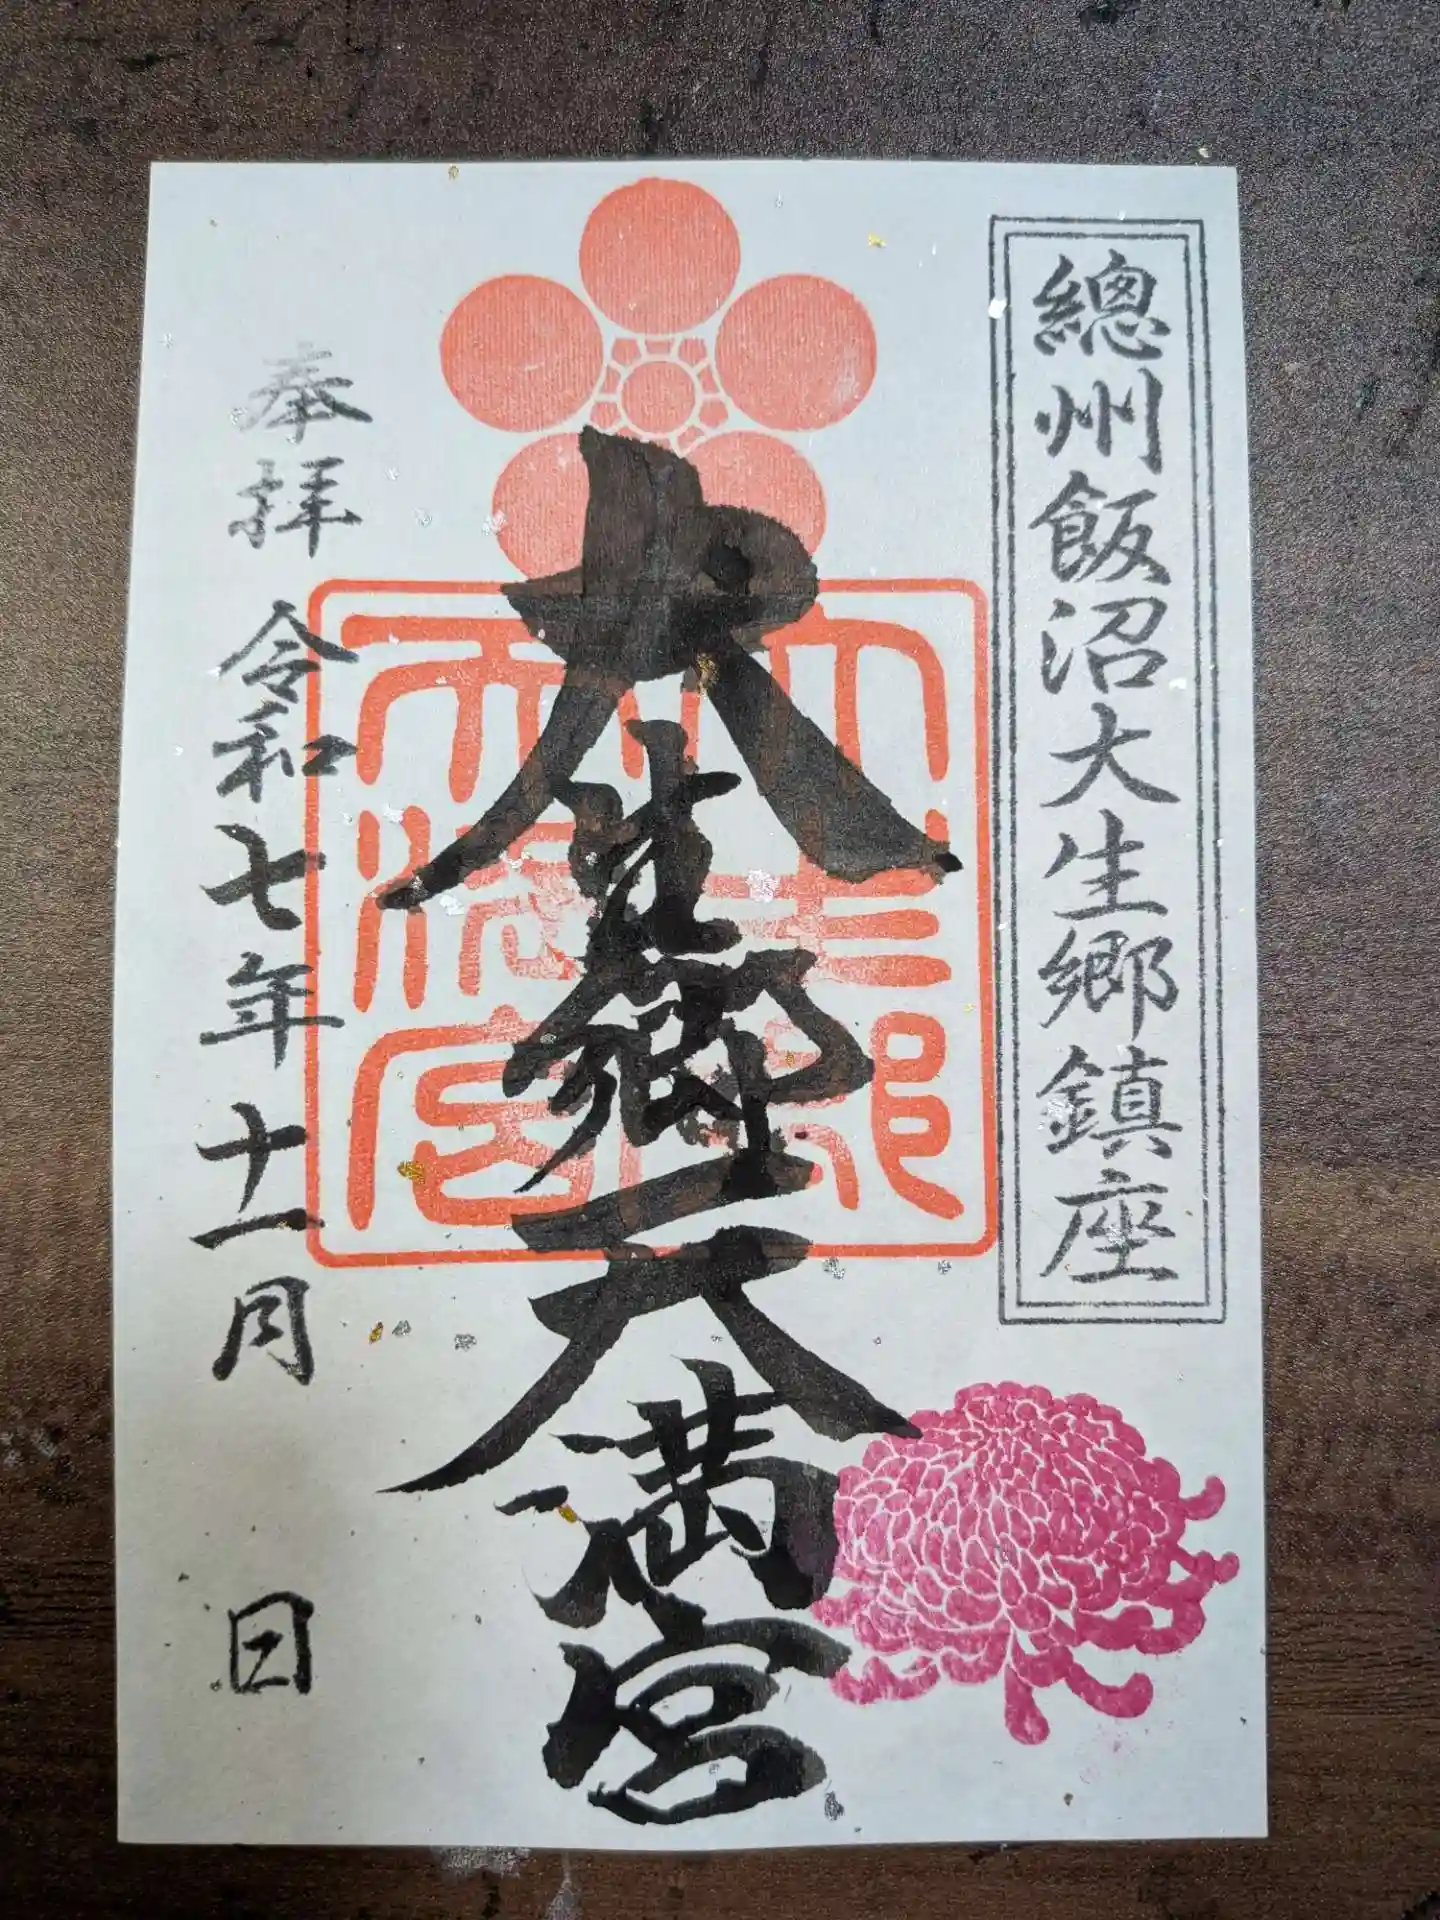 總州飯沼大生郷鎮座
大生郷天満宮
大生郷天満宮
奉拝 令和七年十一月 日